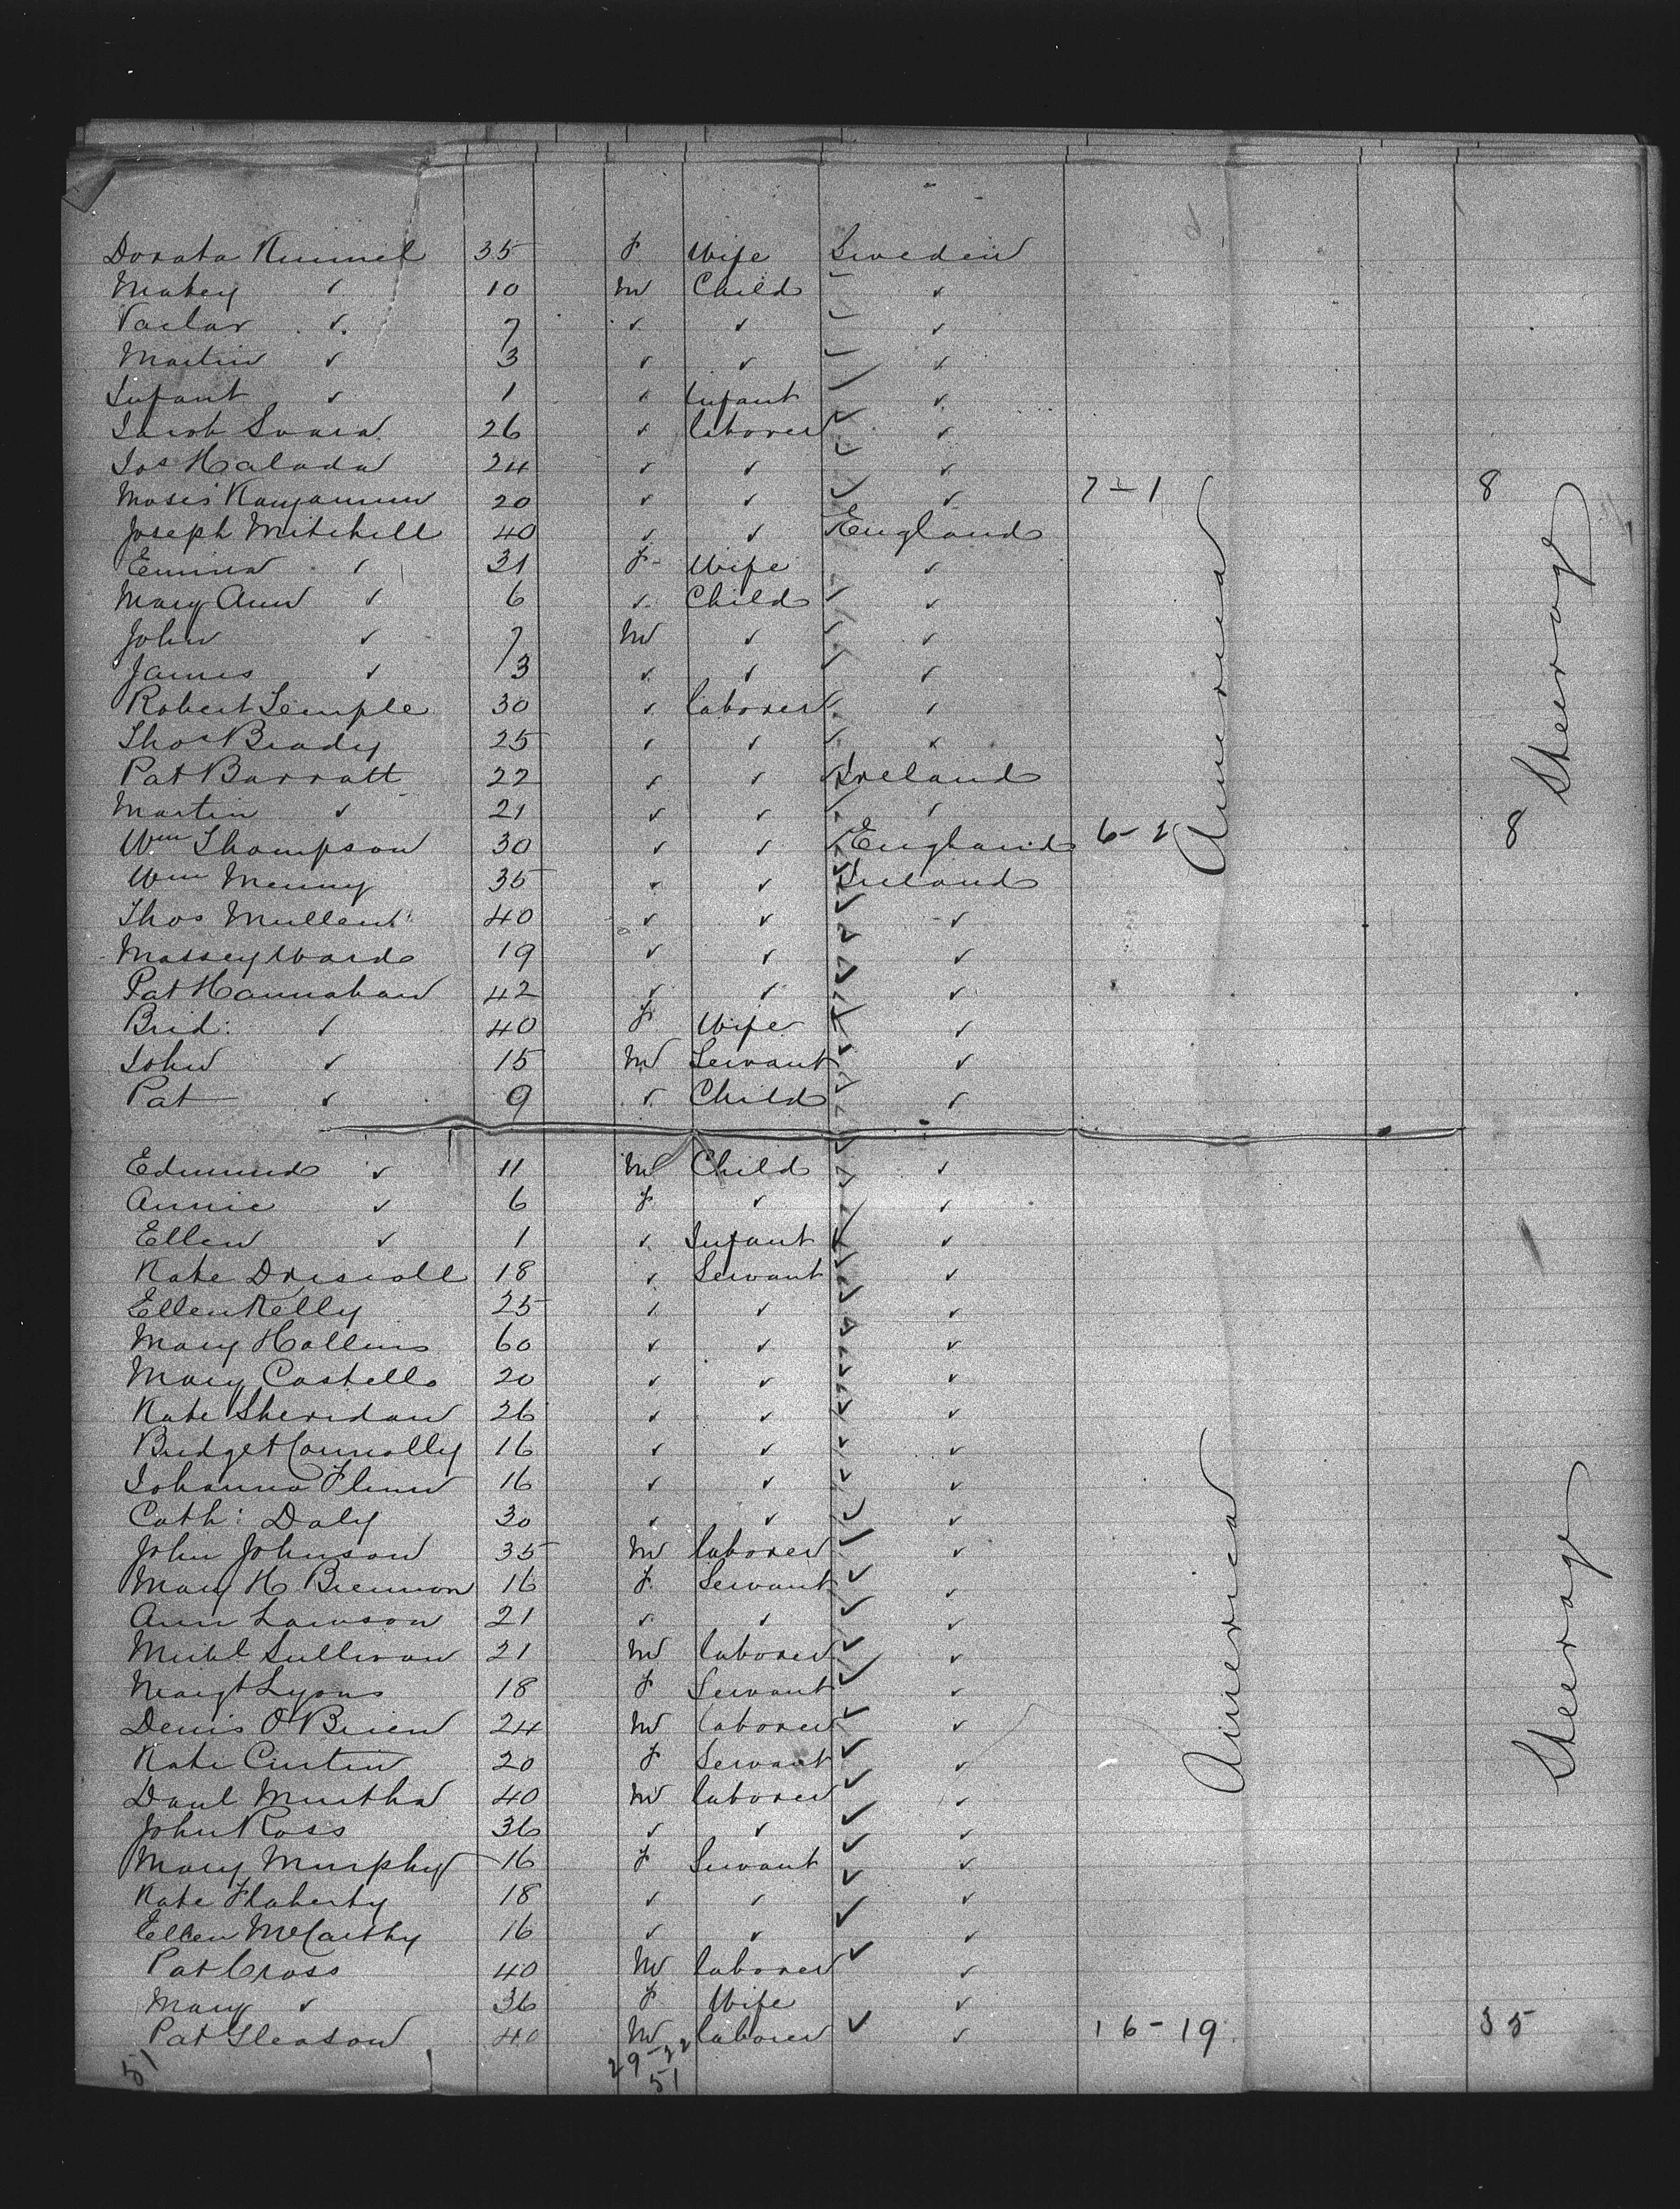 Dorata Kimmel 35 F Wife Sweden
Matey ✓ 10 M Child ✓
Vaclav ✓ 7 ✓ ✓ ✓
Martin ✓ 3 ✓ ✓ ✓
Infant ✓ 1 ✓ Infant ✓
Jacob Svara 26 ✓ laborer ✓
Jos Halada 24 ✓ ✓ ✓
Moses 20 ✓ ✓ ✓ 7-1 8
Joseph Mitchell 40 ✓ ✓ England
Emma ✓ 31 F Wife ✓
Mary Ann ✓ 6 ✓ Child ✓
John ✓ 7 M ✓ ✓
James ✓ 3 ✓ ✓ ✓
Robert Temple 30 ✓ laborer ✓
Thos Brady 25 ✓ ✓ ✓
Pat Barratt 22 ✓ ✓ Ireland
Martin ✓ 21 ✓ ✓ ✓
America
Steerage
Wm Thompson 30 ✓ ✓ England 6-2 8
Wm Menny 35 ✓ ✓ Ireland
Thos Mullen 40 ✓ ✓ ✓
Massey Ward 19 ✓ ✓ ✓
Pat Hannahan 42 ✓ ✓ ✓
Brid: ✓ 40 F Wife ✓
John ✓ 15 M Servant ✓
Pat ✓ 9 ✓ Child ✓
Edmund ✓ 11 M Child ✓
Annie ✓ 6 F ✓ ✓
Ellen ✓ 1 ✓ Infant ✓
Kate Driscoll 18 ✓ Servant ✓
Ellen Kelly 25 ✓ ✓ ✓
Mary Hollins 60 ✓ ✓ ✓
Mary Costello 20 ✓ ✓ ✓
Kate Sheridan 26 ✓ ✓ ✓
Bridget Connolly 16 ✓ ✓ ✓
Johanna Flinn 16 ✓ ✓ ✓
Cath: Daly 30 ✓ ✓ ✓
John Johnson 35 M laborer ✓
Mary H Brennon 16 F Servant ✓
Ann Lawson 21 ✓ ✓ ✓
Michl Sullivan 21 M laborer ✓
Margt Lyons 18 F Servant ✓
Denis O'Brien 24 M laborer ✓
Kate Curtin 20 F Servant ✓
Danl Murtha 40 M laborer ✓
America
Steerage
John Ross 36 ✓ ✓ ✓
Mary Murphy 16 F Servant ✓
Kate Flaherty 18 ✓ ✓ ✓
Ellen McCarthy 16 ✓ ✓ ✓
Pat Cross 40 M laborer ✓
Mary ✓ 36 F Wife ✓
Pat Gleason 40 M laborer ✓ 16-19 35
51 29-22
51